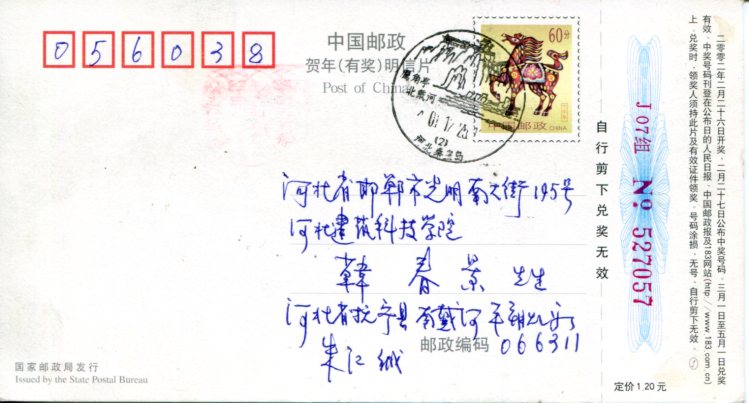 056038
中国邮政
贺年(有奖)明信片
Post of China
60分
中国邮政 CHINA
北戴河
(2)
河北省邯郸市光明南大街195号
河北建筑科技学院
韩 春 景 先生
河北省抚宁县南戴河
朱江
邮政编码 066311
国家邮政局发行
Issued by the State Postal Bureau
自行剪下兑奖无效
J 07组 No. 527057
二〇〇二年二月二十六日开奖·二月二十七日公布中奖号码·三月一日至五月一日兑奖
有效·中奖号码刊登在公布日的人民日报·中国邮政报及183网站(http://www.183.com.cn)
上·兑奖时·领奖人须持此片及有效证件领奖·号码涂损·无号·自行剪下无效·
定价1.20元